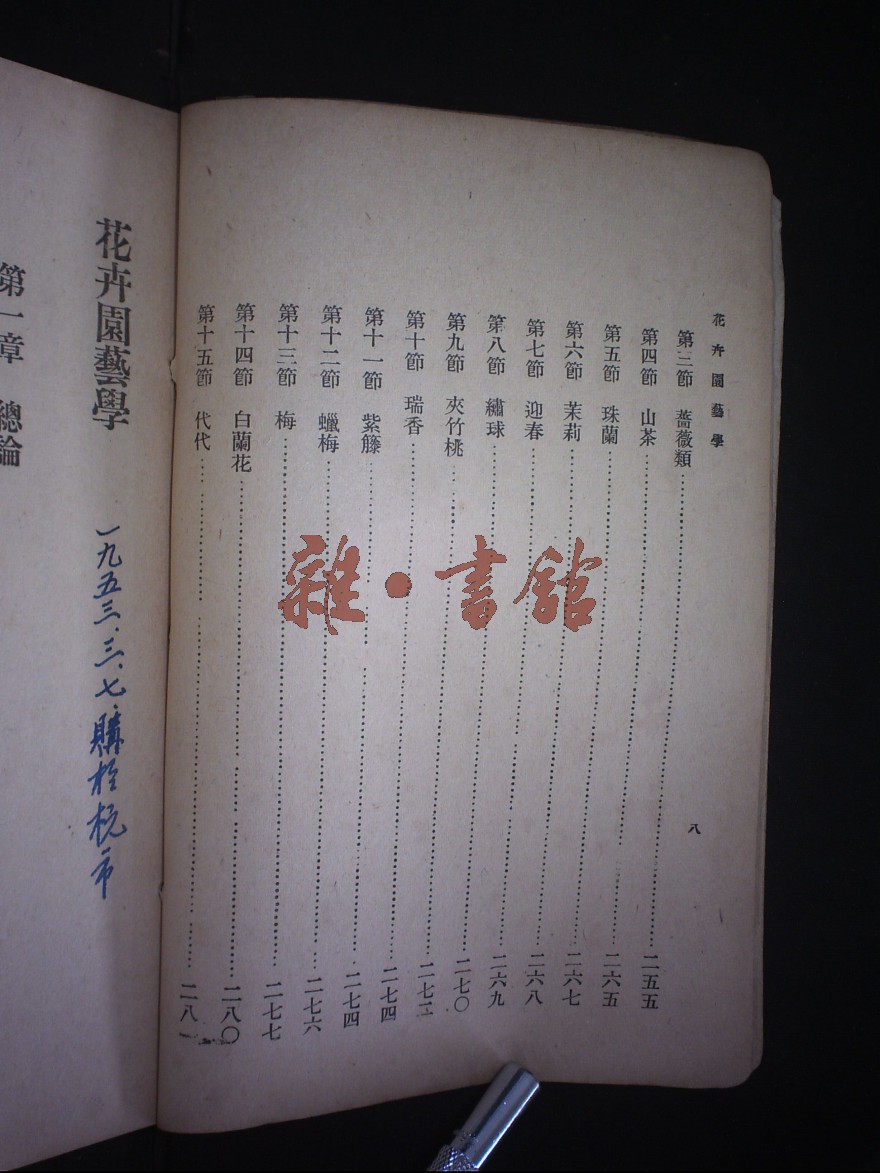 花卉園藝學
第三節 薔薇類……二五五
第四節 山茶……二六五
第五節 珠蘭……二六七
第六節 茉莉……二六八
第七節 迎春……二六九
第八節 繡球……二七〇
第九節 夾竹桃……二七二
第十節 瑞香……二七四
第十一節 紫籐……二七四
第十二節 蠟梅……二七六
第十三節 梅……二七七
第十四節 白蘭花……二八〇
第十五節 代代……二八一
八
雜·書館
花卉園藝學
一九五三、三、七、購於杭市
第一章 總論